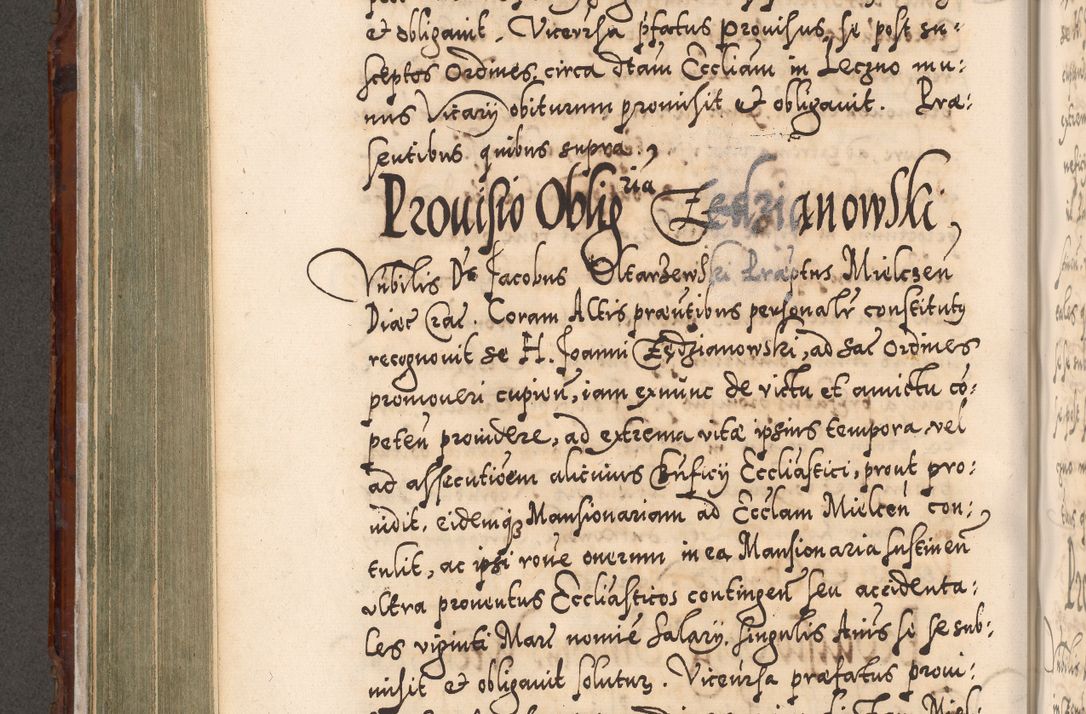 et obligauit. Viceversa pfatus prouisus, se post su-
sceptos Ordines, circa dtam Eccliam in Leczno mu:
nus Vicarij obiturum promisit et obligauit. Præ:
sentibus quibus supra.
Prouisio Oblig ria Zędzianowski
Nobilis Ds Jacobus Oltarzewski Præptus Mielczen
Diæc Crac. Coram Actis præntibus personalr constituty
recognouit se H. Joanni Zędzianowski, ad sac Ordines
promoueri cupien, iam exnunc de victu et amictu co:
peten prouidere, ad extrema vitæ ipsius tempora, vel
ad assecutioem alicuius Bnficij Eccliastici, prout pro:
uidit, eidemq; Mansionariam ad Ecclam Mielcen con:
tulit, ac ipsi roue onerum in ea Mansionaria sustinen
vltra prouentus Eccliasticos contingen seu accidenta:
les viginti Marc nomie salarij, singulis Anis si se sub:
misit et obligauit soluturz. Viceuersa præfatus proui: